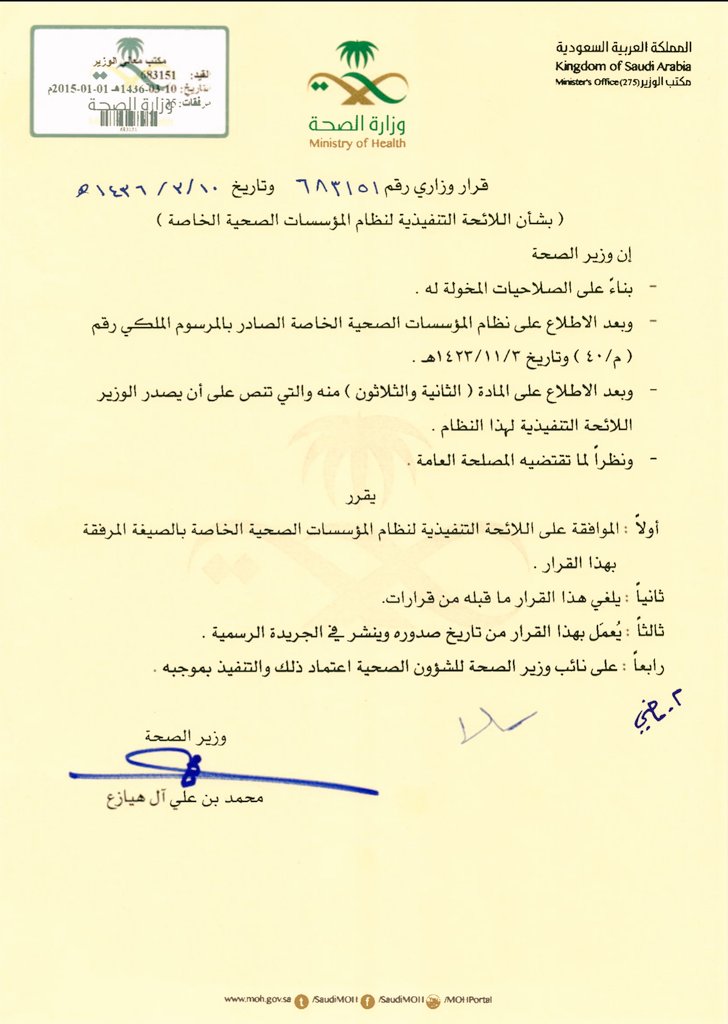 المملكة العربية السعودية
Kingdom of Saudi Arabia
Minister's Office (275) مكتب الوزير
وزارة الصحة
Ministry of Health
مكتب معالي الوزير
القيد: 683151
التاريخ: 10-03-1436هـ 01-01-2015م
وزارة الصحة
قرار وزاري رقم ٦٨٣١٥١ وتاريخ ١٤٣٦/٣/١٠هـ
( بشأن اللائحة التنفيذية لنظام المؤسسات الصحية الخاصة )
إن وزير الصحة
- بناءً على الصلاحيات المخولة له .
- وبعد الاطلاع على نظام المؤسسات الصحية الخاصة الصادر بالمرسوم الملكي رقم
( م/٤٠ ) وتاريخ ١٤٢٣/١١/٣هـ .
- وبعد الاطلاع على المادة ( الثانية والثلاثون ) منه والتي تنص على أن يصدر الوزير
اللائحة التنفيذية لهذا النظام .
- ونظراً لما تقتضيه المصلحة العامة .
يقرر
أولاً : الموافقة على اللائحة التنفيذية لنظام المؤسسات الصحية الخاصة بالصيغة المرفقة
بهذا القرار .
ثانياً : يلغي هذا القرار ما قبله من قرارات.
ثالثاً : يُعمَل بهذا القرار من تاريخ صدوره وينشر في الجريدة الرسمية .
رابعاً : على نائب وزير الصحة للشؤون الصحية اعتماد ذلك والتنفيذ بموجبه .
وزير الصحة
محمد بن علي آل هيازع
www.moh.gov.sa /SaudiMOH /SaudiMOH /MOHPortal